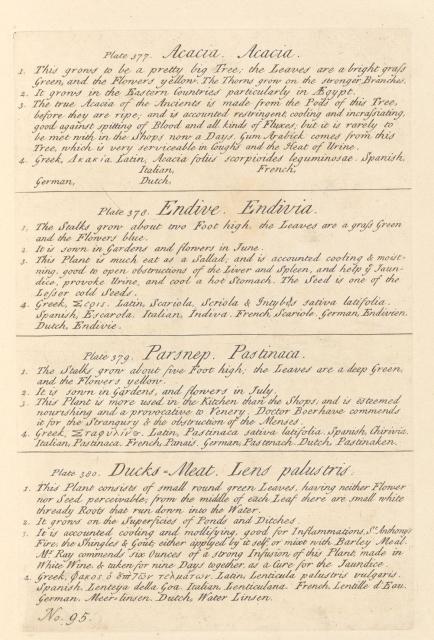 Plate 377. Acacia. Acacia.
1. This grows to be a pretty big Tree; the Leaves are a bright grass
Green, and the Flowers yellow. The Thorns grow on the stronger Branches.
2. It grows in the Eastern Countries particularly in Ægypt.
3. The true Acacia of the Ancients is made from the Pods of this Tree,
before they are ripe; and is accounted restringent, cooling and incrassating,
good against spitting of Blood and all kinds of Fluxes; but it is rarely to
be met with in the Shops now a Days. Gum Arabick comes from this
Tree, which is very serviceable in Coughs and the Heat of Urine.
4. Greek, Ακακία. Latin, Acacia foliis scorpioides leguminosae. Spanish,
Italian, French,
German, Dutch,
Plate 378. Endive. Endivia.
1. The Stalks grow about two Foot high, the Leaves are a grass Green
and the Flowers blue.
2. It is sown in Gardens and flowers in June.
3. This Plant is much eat as a Sallad; and is accounted cooling & moist-
ning, good to open obstructions of the Liver and Spleen, and help ẙ Jaun-
dice, provoke Urine, and cool a hot Stomach. The Seed is one of the
Lesser cold Seeds.
4. Greek, Σερις. Latin, Scariola, Scriola & Intybus sativa latifolia.
Spanish, Escarola. Italian, Indiva. French, Scariole. German, Endivien.
Dutch, Endivie.
Plate 379. Parsnep. Pastinaca.
1. The Stalks grow about five Foot high; the Leaves are a deep Green,
and the Flowers yellow.
2. It is sown in Gardens, and flowers in July.
3. This Plant is more used in the Kitchen than the Shops, and is esteemed
nourishing and a provocative to Venery. Doctor Boerhave commends
it for the Strangury & the obstruction of the Menses.
4. Greek, Σταφυλῖν⊙. Latin, Pastinaca sativa latifolia. Spanish, Chirivia.
Italian, Pastinaca. French, Panais. German, Pastenach. Dutch, Pastinaken.
Plate 380. Ducks-Meat. Lens palustris.
1. This Plant consists of small round green Leaves, having neither Flower
nor Seed perceivable; from the middle of each Leaf there are small white
thready Roots that run down into the Water.
2. It grows on the Superficies of Ponds and Ditches.
3. It is accounted cooling and mollifying, good for Inflammations, St. Anthony's
Fire, the Shingles & Gout; either applyed by it self or mixt with Barley Meal.
Mr. Ray commends six Ounces of a strong Infusion of this Plant made in
White Wine, & taken for nine Days together, as a Cure for the Jaundice.
4. Greek, Φακος ὁ ἐπὶ τῶν τελμάτων. Latin, Lenticula palustris vulgaris.
Spanish, Lenteya della Goa. Italian, Lenticulana. French, Lentille d'Eau.
German, Meer-linsen. Dutch, Water Linsen.
No. 95.